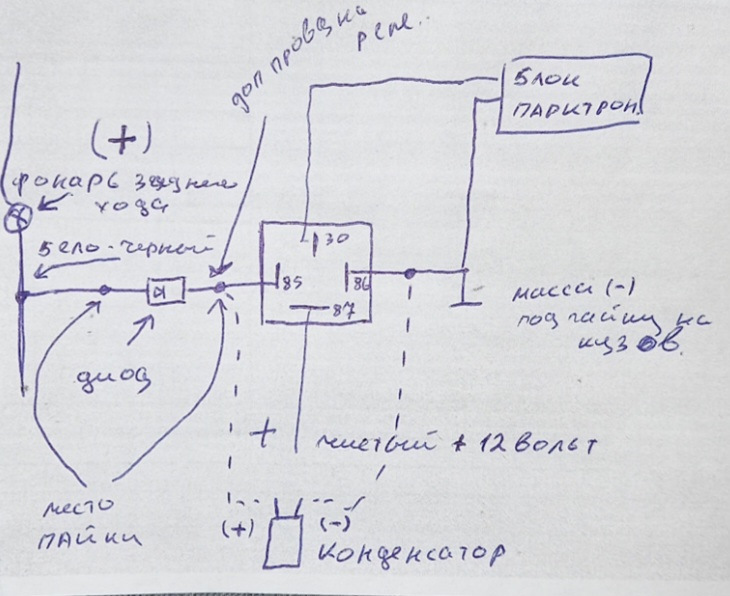 доп провод на
реле.
Блок
парктрон.
(+)
фонарь заднего
хода
бело-черный
30
85
86
87
диод
масса (-)
под гайку на
кузов.
+ чистый + 12 вольт
место
пайки
(+)
(-)
конденсатор